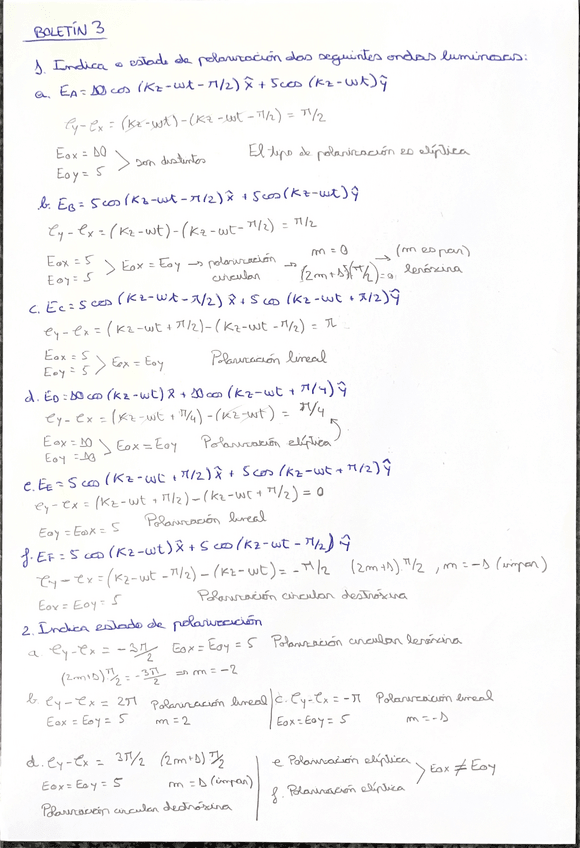 BOLETÍN 3
1. Indica o estado de polarización das seguintes ondas luminosas:
a. EA = 10 cos (Kz - wt - π/2) x̂ + 5 cos (Kz - wt) ŷ
φy - φx = (Kz - wt) - (Kz - wt - π/2) = π/2
Eox = 10
Eoy = 5 > son distintos El tipo de polarización es elíptica
b. EB = 5 cos (Kz - wt - π/2) x̂ + 5 cos (Kz - wt) ŷ
φy - φx = (Kz - wt) - (Kz - wt - π/2) = π/2
Eox = 5
Eoy = 5 > Eox = Eoy → polarización circular → m = 0 (2m+1)(π/2) = 0. → (m es par) levóxira
c. Ec = 5 cos (Kz - wt - π/2) x̂ + 5 cos (Kz - wt + π/2) ŷ
φy - φx = (Kz - wt + π/2) - (Kz - wt - π/2) = π
Eox = 5
Eoy = 5 > Eox = Eoy Polarización lineal
d. ED = 10 cos (Kz - wt) x̂ + 10 cos (Kz - wt + π/4) ŷ
φy - φx = (Kz - wt + π/4) - (Kz - wt) = π/4
Eox = 10
Eoy = 10 > Eox = Eoy Polarización elíptica
e. EE = 5 cos (Kz - wt + π/2) x̂ + 5 cos (Kz - wt + π/2) ŷ
φy - φx = (Kz - wt + π/2) - (Kz - wt + π/2) = 0
Eoy = Eox = 5 Polarización lineal
f. EF = 5 cos (Kz - wt) x̂ + 5 cos (Kz - wt - π/2) ŷ
φy - φx = (Kz - wt - π/2) - (Kz - wt) = - π/2 (2m+1) π/2, m = -1 (impar)
Eox = Eoy = 5 Polarización circular dextróxira
2. Indica estado de polarización
a φy - φx = - 3π/2 Eox = Eoy = 5 Polarización circular levóxira
(2m+1) π/2 = - 3π/2 ⇒ m = -2
b. φy - φx = 2π Polarización lineal
Eox = Eoy = 5 m = 2
c. φy - φx = -π Polarización lineal
Eox = Eoy = 5 m = -1
d. φy - φx = 3π/2 (2m+1) π/2
Eox = Eoy = 5 m = 1 (impar)
Polarización circular dextróxira
e Polarización elíptica
f. Polarización elíptica > Eox ≠ Eoy